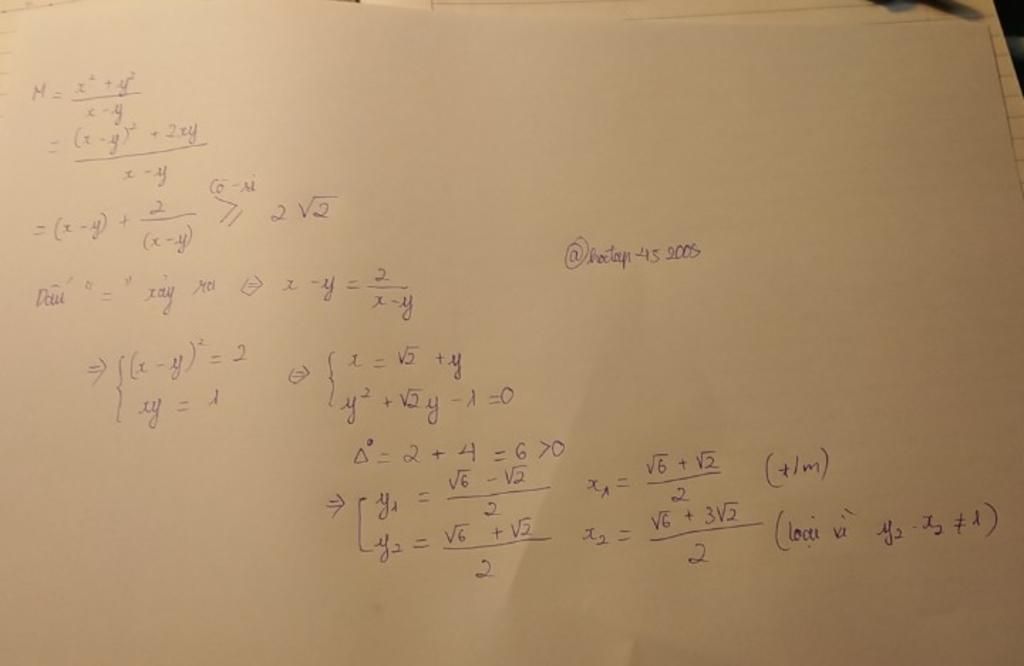 M = \frac{x² + y²}{x - y}
= \frac{(x - y)² + 2xy}{x - y}
= (x - y) + \frac{2}{(x - y)} \overset{Cô-si}{⩾} 2√2
@hoctap-45 2005
Dấu "=" xảy ra ⇔ x - y = \frac{2}{x - y}
⇒ { (x - y)² = 2 ⇔ { x = √2 + y
xy = 1 y² + √2y - 1 = 0
Δ = 2 + 4 = 6 > 0
⇒ [ y₁ = \frac{√6 - √2}{2} x₁ = \frac{√6 + √2}{2} (t/m)
y₂ = \frac{√6 + √2}{2} x₂ = \frac{√6 + 3√2}{2} (loại vì y₂ . x₂ ≠ 1)